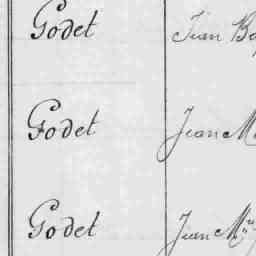 Godet Jean Ba
Godet Jean M
Godet Jean M